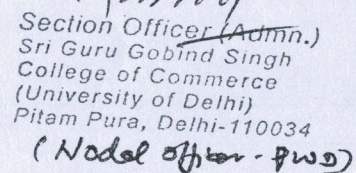 Section Officer (Admn.)
Sri Guru Gobind Singh
College of Commerce
(University of Delhi)
Pitam Pura, Delhi-110034
(Nodal Officer - PWD)